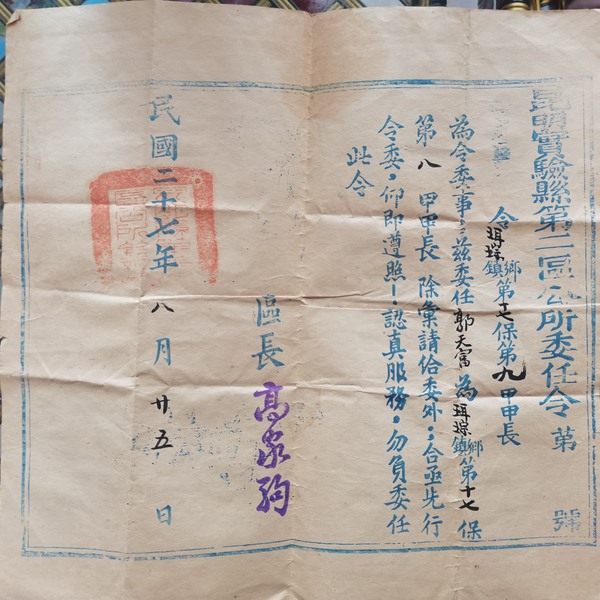 昆明實驗縣第二區公所委任令 第 號
令珥琮鄉鎮第 保第九甲甲長
為令委事：茲委任郭天富為珥琮鄉鎮第十七保
第八甲甲長除彙請給委外；合亟先行
令委。仰即遵照！認真服務。勿負委任
此令
區長 高家
民國二十七年八月廿五日